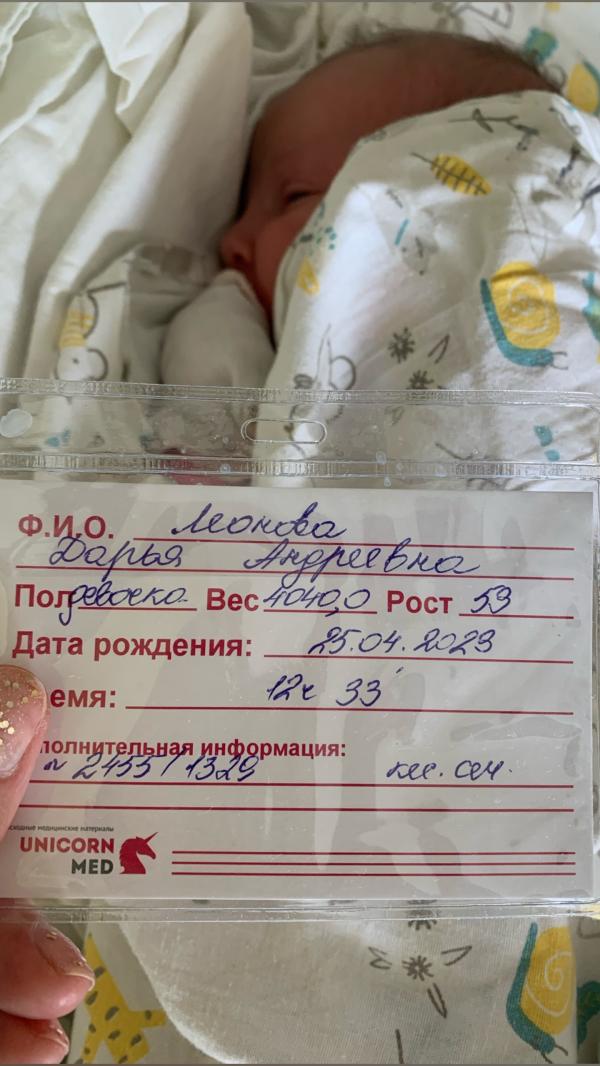 Ф.И.О. Леонова
Дарья Андреевна
Пол девочка Вес 4040,0 Рост 59
Дата рождения: 25.04.2023
емя: 12ч 33'
полнительная информация:
№ 2455 / 1329 кес. сеч.
сходные медицинские материалы
UNICORN
MED